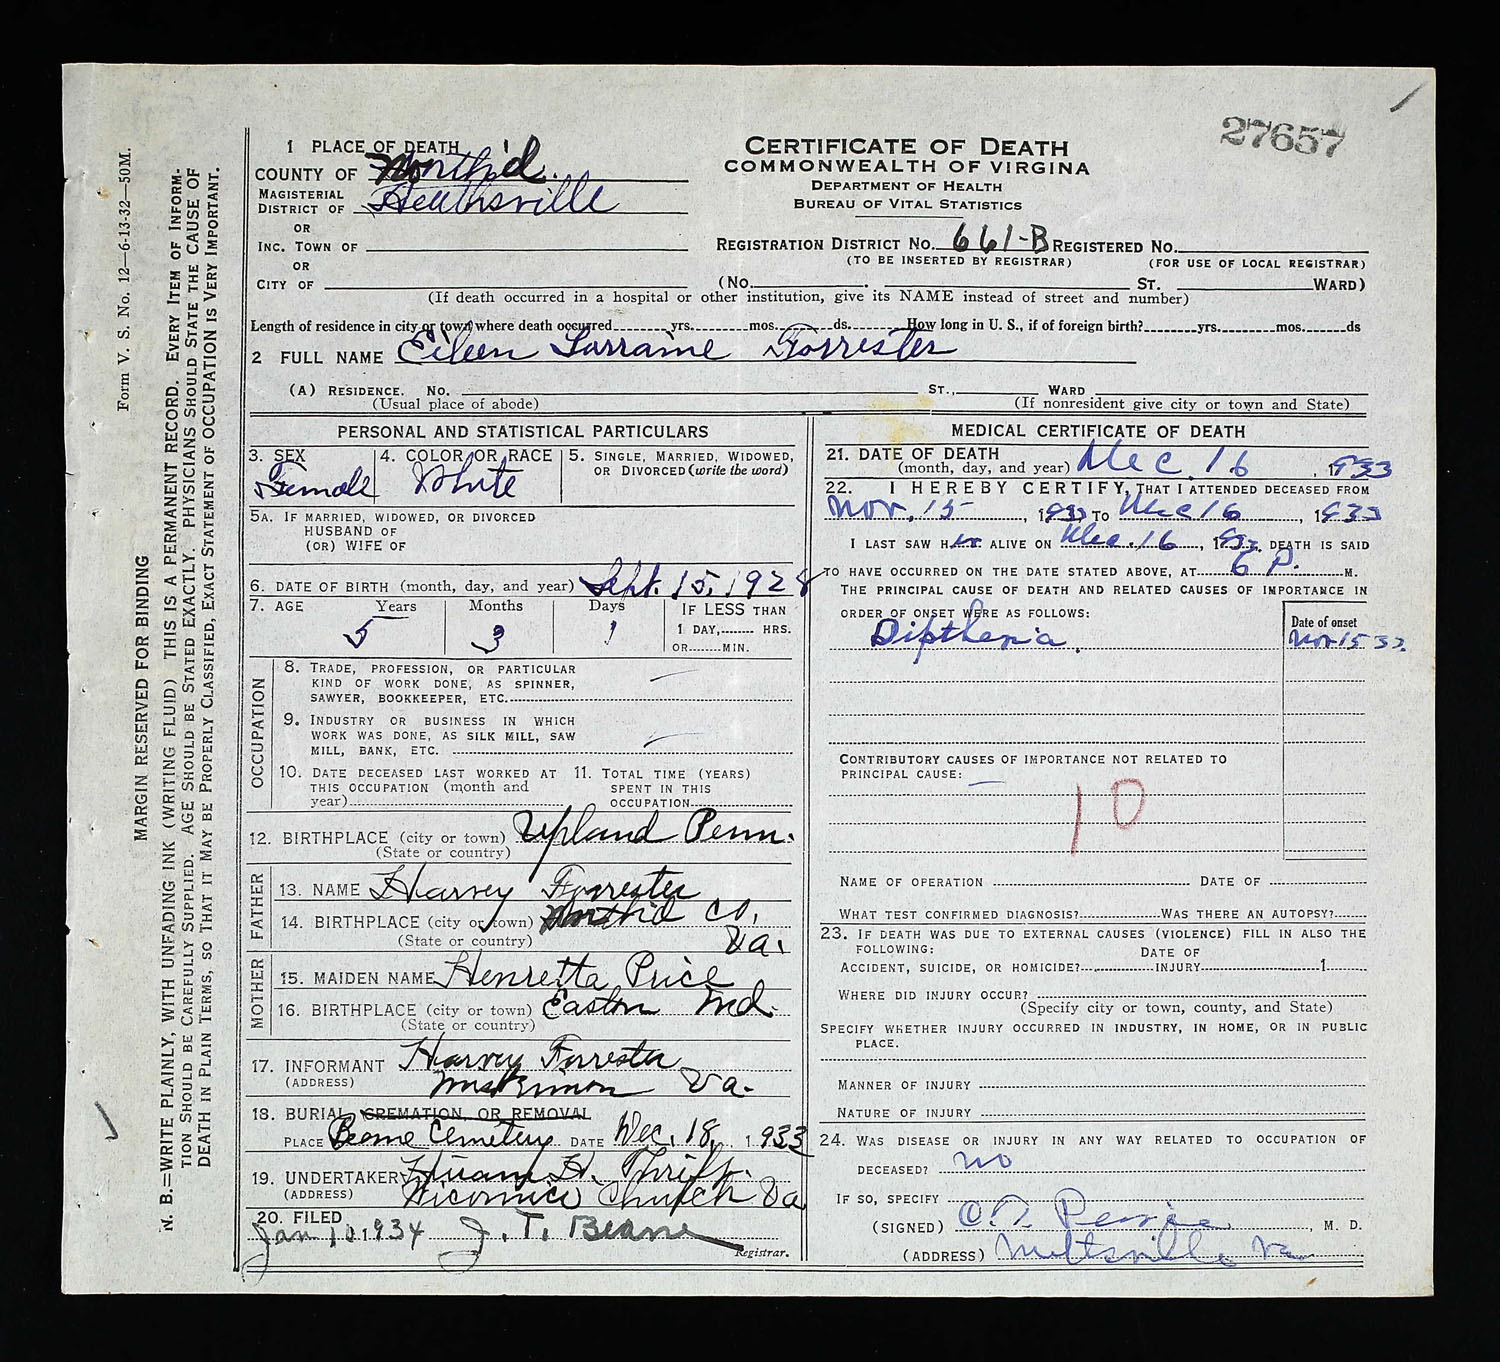 27657
Form V. S. No. 12—6-13-32—50M.
MARGIN RESERVED FOR BINDING
N. B.=WRITE PLAINLY, WITH UNFADING INK (WRITING FLUID) THIS IS A PERMANENT RECORD. EVERY ITEM OF INFORM-
TION SHOULD BE CAREFULLY SUPPLIED. AGE SHOULD BE STATED EXACTLY. PHYSICIANS SHOULD STATE THE CAUSE OF
DEATH IN PLAIN TERMS, SO THAT IT MAY BE PROPERLY CLASSIFIED, EXACT STATEMENT OF OCCUPATION IS VERY IMPORTANT.
1 PLACE OF DEATH
COUNTY OF North'd.
MAGISTERIAL DISTRICT OF Heathsville
OR
INC. TOWN OF
OR
CITY OF
CERTIFICATE OF DEATH
COMMONWEALTH OF VIRGINA
DEPARTMENT OF HEALTH
BUREAU OF VITAL STATISTICS
REGISTRATION DISTRICT NO. 661-B REGISTERED NO.
(TO BE INSERTED BY REGISTRAR) (FOR USE OF LOCAL REGISTRAR)
(NO. ST. WARD)
(If death occurred in a hospital or other institution, give its NAME instead of street and number)
Length of residence in city or town where death occurred yrs. mos. ds. How long in U. S., if of foreign birth? yrs. mos. ds
2 FULL NAME Eileen Lorraine Forrester
(A) RESIDENCE. NO. ST., WARD
(Usual place of abode) (If nonresident give city or town and State)
PERSONAL AND STATISTICAL PARTICULARS
3. SEX 4. COLOR OR RACE 5. SINGLE, MARRIED, WIDOWED,
OR DIVORCED (write the word)
Female White
5A. IF MARRIED, WIDOWED, OR DIVORCED
HUSBAND OF
(OR) WIFE OF
6. DATE OF BIRTH (month, day, and year) Sept. 15, 1928
7. AGE Years Months Days IF LESS THAN
1 DAY, HRS.
OR MIN.
5 3 1
OCCUPATION
8. TRADE, PROFESSION, OR PARTICULAR
KIND OF WORK DONE, AS SPINNER,
SAWYER, BOOKKEEPER, ETC.
9. INDUSTRY OR BUSINESS IN WHICH
WORK WAS DONE, AS SILK MILL, SAW
MILL, BANK, ETC.
10. DATE DECEASED LAST WORKED AT
THIS OCCUPATION (month and
year)
11. TOTAL TIME (YEARS)
SPENT IN THIS
OCCUPATION
12. BIRTHPLACE (city or town) Upland Penn.
(State or country)
FATHER
13. NAME Harvey Forrester
14. BIRTHPLACE (city or town) North'd Co,
(State or country) Va.
MOTHER
15. MAIDEN NAME Henretta Price
16. BIRTHPLACE (city or town) Easton Md.
(State or country)
17. INFORMANT Harvey Forrester
(ADDRESS) Va.
18. BURIAL CREMATION, OR REMOVAL
PLACE Beane Cemetery DATE Dec. 18, 1933
19. UNDERTAKER Hiram H. Thrift.
(ADDRESS) Wicomico Church Va
20. FILED
Jan 10 1934 J. T. Beane
Registrar.
MEDICAL CERTIFICATE OF DEATH
21. DATE OF DEATH
(month, day, and year) Dec. 16, 1933
22. I HEREBY CERTIFY, THAT I ATTENDED DECEASED FROM
Nov. 15, 1933 TO Dec 16, 1933
I LAST SAW HER ALIVE ON Dec. 16, 1933, DEATH IS SAID
TO HAVE OCCURRED ON THE DATE STATED ABOVE, AT 6 P. M.
THE PRINCIPAL CAUSE OF DEATH AND RELATED CAUSES OF IMPORTANCE IN
ORDER OF ONSET WERE AS FOLLOWS:
Date of onset
Diptheria. Nov 15 33.
CONTRIBUTORY CAUSES OF IMPORTANCE NOT RELATED TO
PRINCIPAL CAUSE:
10
NAME OF OPERATION DATE OF
WHAT TEST CONFIRMED DIAGNOSIS? WAS THERE AN AUTOPSY?
23. IF DEATH WAS DUE TO EXTERNAL CAUSES (VIOLENCE) FILL IN ALSO THE
FOLLOWING:
ACCIDENT, SUICIDE, OR HOMICIDE? DATE OF INJURY 1
WHERE DID INJURY OCCUR?
(Specify city or town, county, and State)
SPECIFY WHETHER INJURY OCCURRED IN INDUSTRY, IN HOME, OR IN PUBLIC
PLACE.
MANNER OF INJURY
NATURE OF INJURY
24. WAS DISEASE OR INJURY IN ANY WAY RELATED TO OCCUPATION OF
DECEASED? no
IF SO, SPECIFY
(SIGNED) , M. D.
(ADDRESS) Va